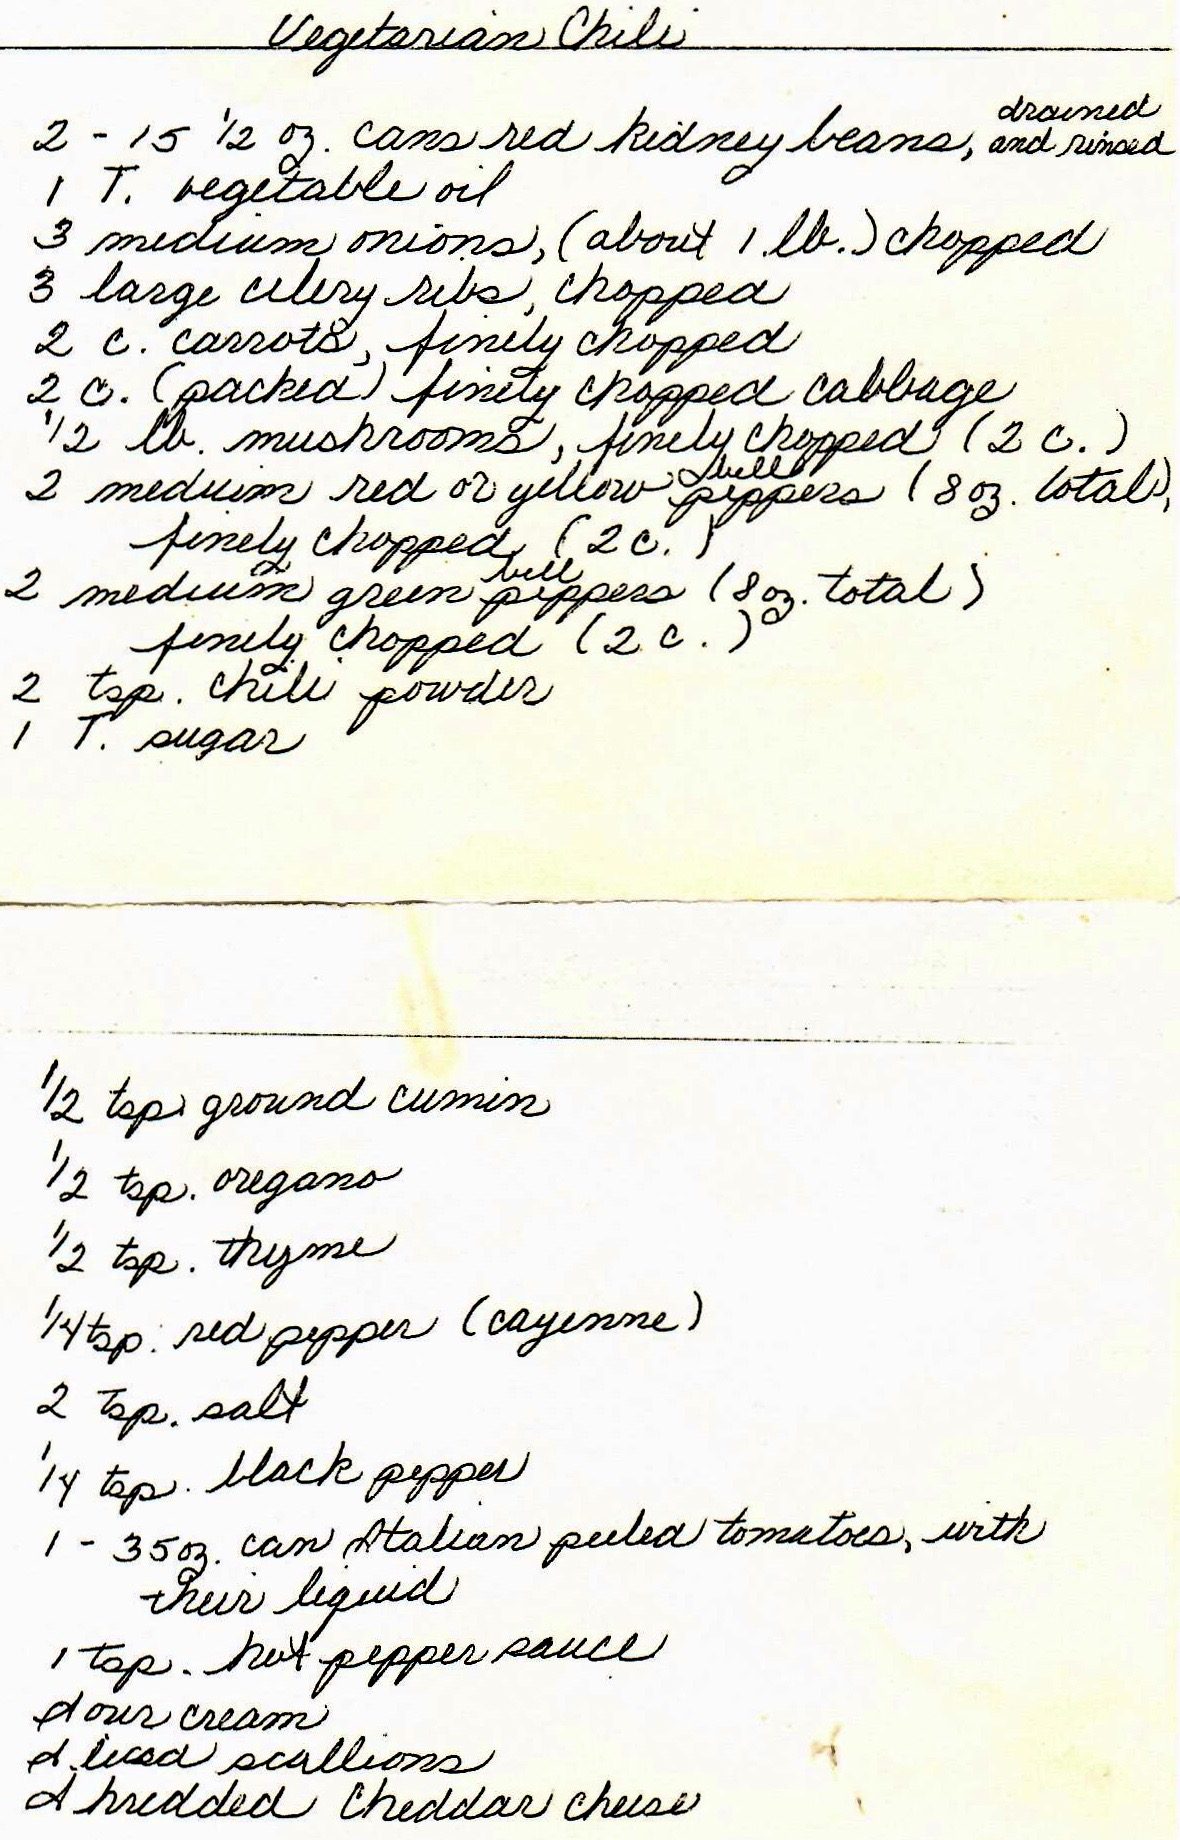 Vegetarian Chili
2 - 15 1/2 oz. cans red kidney beans, drained and rinsed
1 T. vegetable oil
3 medium onions, (about 1 lb.) chopped
3 large celery ribs, chopped
2 c. carrots, finely chopped
2 c. (packed) finely chopped cabbage
1/2 lb. mushrooms, finely chopped (2 c.)
2 medium red or yellow bell peppers (8 oz. total),
finely chopped (2 c.)
2 medium green bell peppers (8 oz. total)
finely chopped (2 c.)
2 tsp. chili powder
1 T. sugar
1/2 tsp. ground cumin
1/2 tsp. oregano
1/2 tsp. thyme
1/4 tsp. red pepper (cayenne)
2 tsp. salt
1/4 tsp. black pepper
1 - 35 oz. can Italian peeled tomatoes, with
their liquid
1 tsp. hot pepper sauce
Sour cream
Sliced scallions
Shredded Cheddar cheese